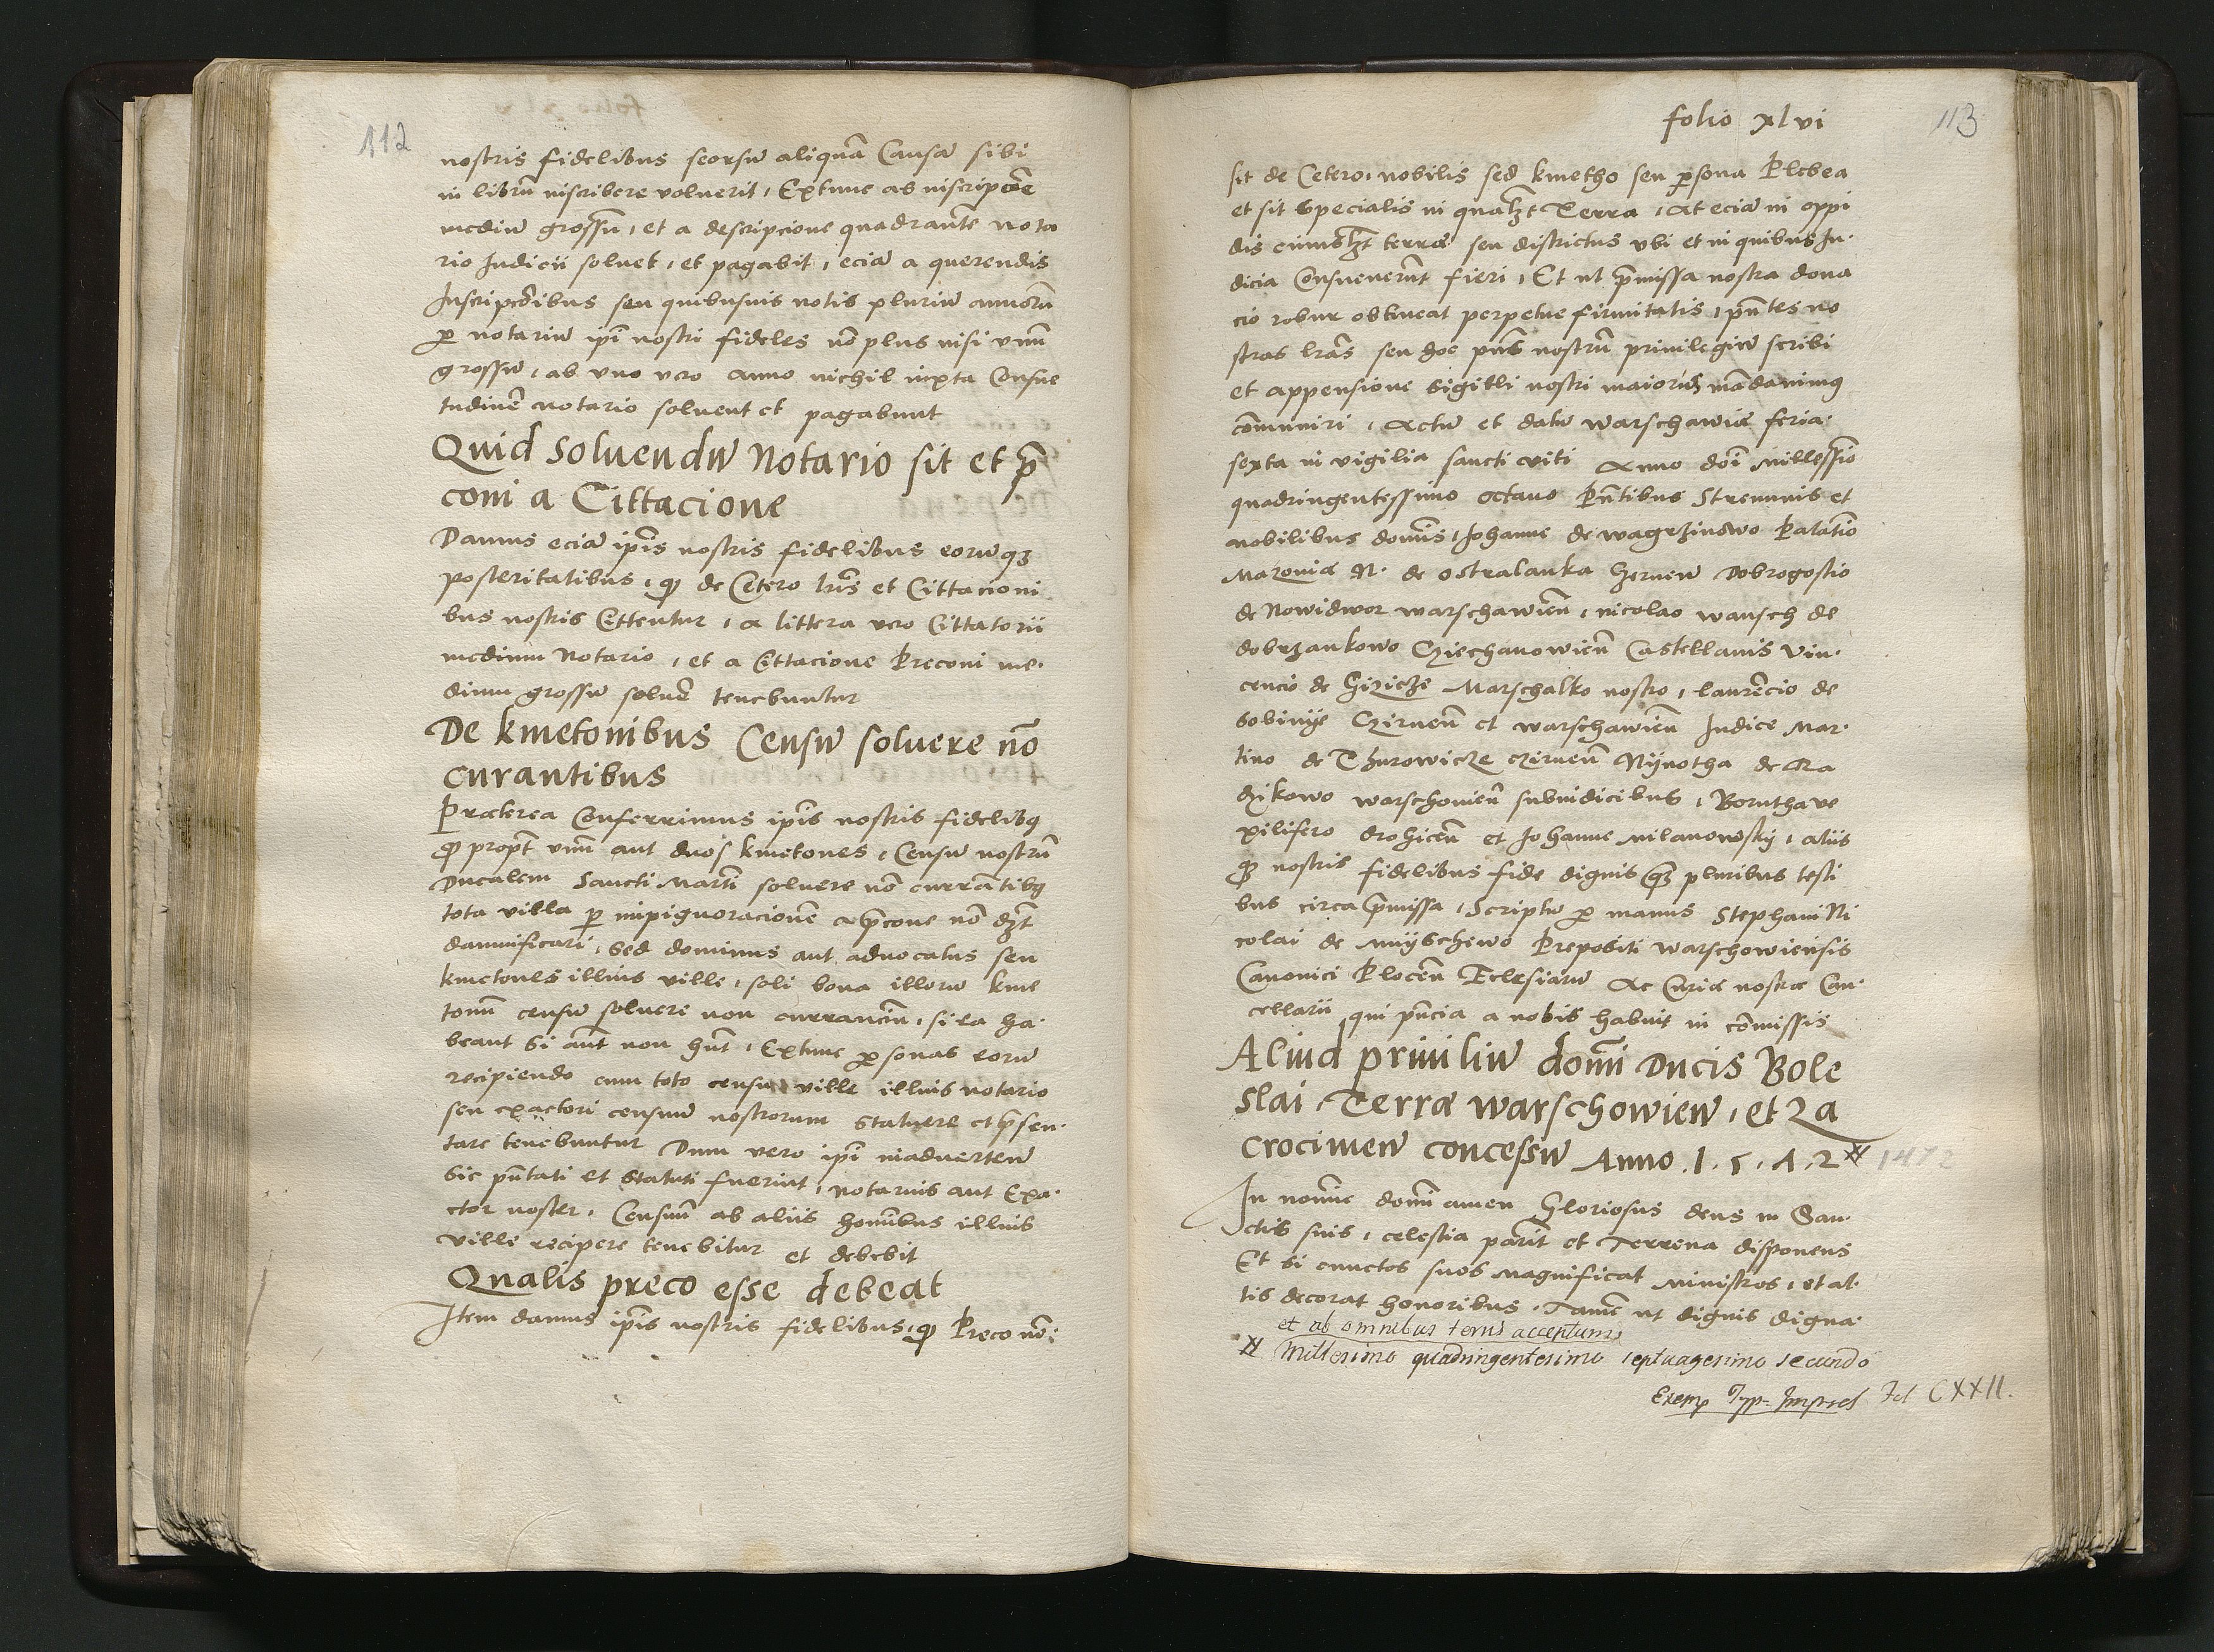 112
nostris fidelibus seorsū aliquā Causā sibi
in librū inscribere voluerit, Extunc ab inscripcōe
mediū grossū, et a descripcione quadrantē nota
rio Iudicii soluet, et pagabit, eciā a querendis
Inscripcōibus seu quibusuis notis pluriū annorū
ꝑ notariū ip̄i nostri fideles nō plus nisi vnū
grossū, ab vno vero anno nichil iuxta Consue
tudinē notario soluent et pagabunt
Quid Soluendū Notario sit et p̄
coni a Cittacione
Damus eciā ip̄is nostris fidelibus eorūqꝫ
posteritatibus, ꝙ de Cetero lr̄is et Cittacioni
bus nostris Cittentur, a littera vero Cittatorii
medium Notario, et a Cittacione Preconi me-
dium grossū soluē tenebuntur
De kmetonibus Censū soluere nō
curantibus
Præterea Conferrimus ip̄is nostris fidelibꝯ
ꝙ propt̄ vnū aut duos kmetones, Censū nostrū
Ducalem Sancti Martī soluere nō currātibꝯ
tota villa ꝑ impignoracionē a p̄cone nō dꝫt
damnificari, Sed dominus aut aduocatus seu
kmetones illius ville, soli bona illorū kme
tonū censū soluere non currancīū, si ea ha-
beant Si aūt non hn̄t, Extunc ꝑsonas eorū
recipiendo cum toto censu ville illius notario
seu exactori censuū nostrorum Statuere et p̄sen-
tare tenebuntur Dum vero ip̄i inaduerten̄
Sic pn̄tati et Statuti fuerint, notarius aut Exa-
ctor noster, Censum ab aliis hominibus illius
ville recipere tenebitur et debebit
Qualis preco esse debeat
Item damus ip̄is nostris fidelibus, ꝙ Preco nō
folio xlvi
113
sit de Cetero, nobilis sed kmetho seu ꝑsona Plebea
et sit Specialis in qualꝫt Terra, At eciā in oppi
dis cuiuslꝫt terræ seu districtus vbi et in quibus Iu-
dicia Consueuerūt fieri, Et ut p̄missa nostra dona
cio robur obtineat perpetue firmitatis, pn̄tes no
stras lr̄as seu hoc pn̄s nostrū priuilegiū scribi
et appensione Sigilli nostri maioris mādauimꝯ
cōmuniri, Actū et datū Warschawiæ feria
sexta in vigilia sancti viti Anno dōi Millessīo
quadringentessimo octauo Pn̄tibus Strennuis et
nobilibus domīs, Iohanne de Wagrzinowo Palatīo
Mazouiæ N. de Ostralanka Dobrogostio
de Nowidwor warschawien̄, nicolao wansch de
dobrzankowo Cziechanowien̄ Castellanis Vin-
cencio de Gizicze Marschalko nostro, laurēcio de
Sobinije Czirnen̄ et warschawien̄ Iudice Mar-
tino de Thurowicze czirnen̄ Nijnotha de Ra
dzikowo warschouien̄ subiudicibus, Borutha ve
xilifero drohicen̄ et Iohanne Milanowskij, aliis
qꝫ nostris fidelibus fide dignis qꝫ pluribus testi
bus circa p̄missa, Scriptū ꝑ manus Stephani Ni
colai de Mnijschewo Prepositi Warschowiensis
Canonici Plocen̄ Eclesiarū Ac Curiæ nostræ Can-
cellarii, qui pn̄cia a nobis habuit in cōmissis
Aliud priuiliū domī Ducis Bole
slai Terræ Warschowien̄, et Za
crocimen̄ concessū Anno .1.5.4.2 # 1472
In nomīe domī amen Gloriosus deus in San-
ctis suis, celestia parīt et Terrena disponens
Et si cunctos suos magnificat Ministros, et al-
tis decorat honoribus, Tamē ut dignis digna
et ab omnibus terris acceptum
# Millesimo quadringentesimo septuagesimo secundo
Exemp Typ= Impres Fol CXXII.